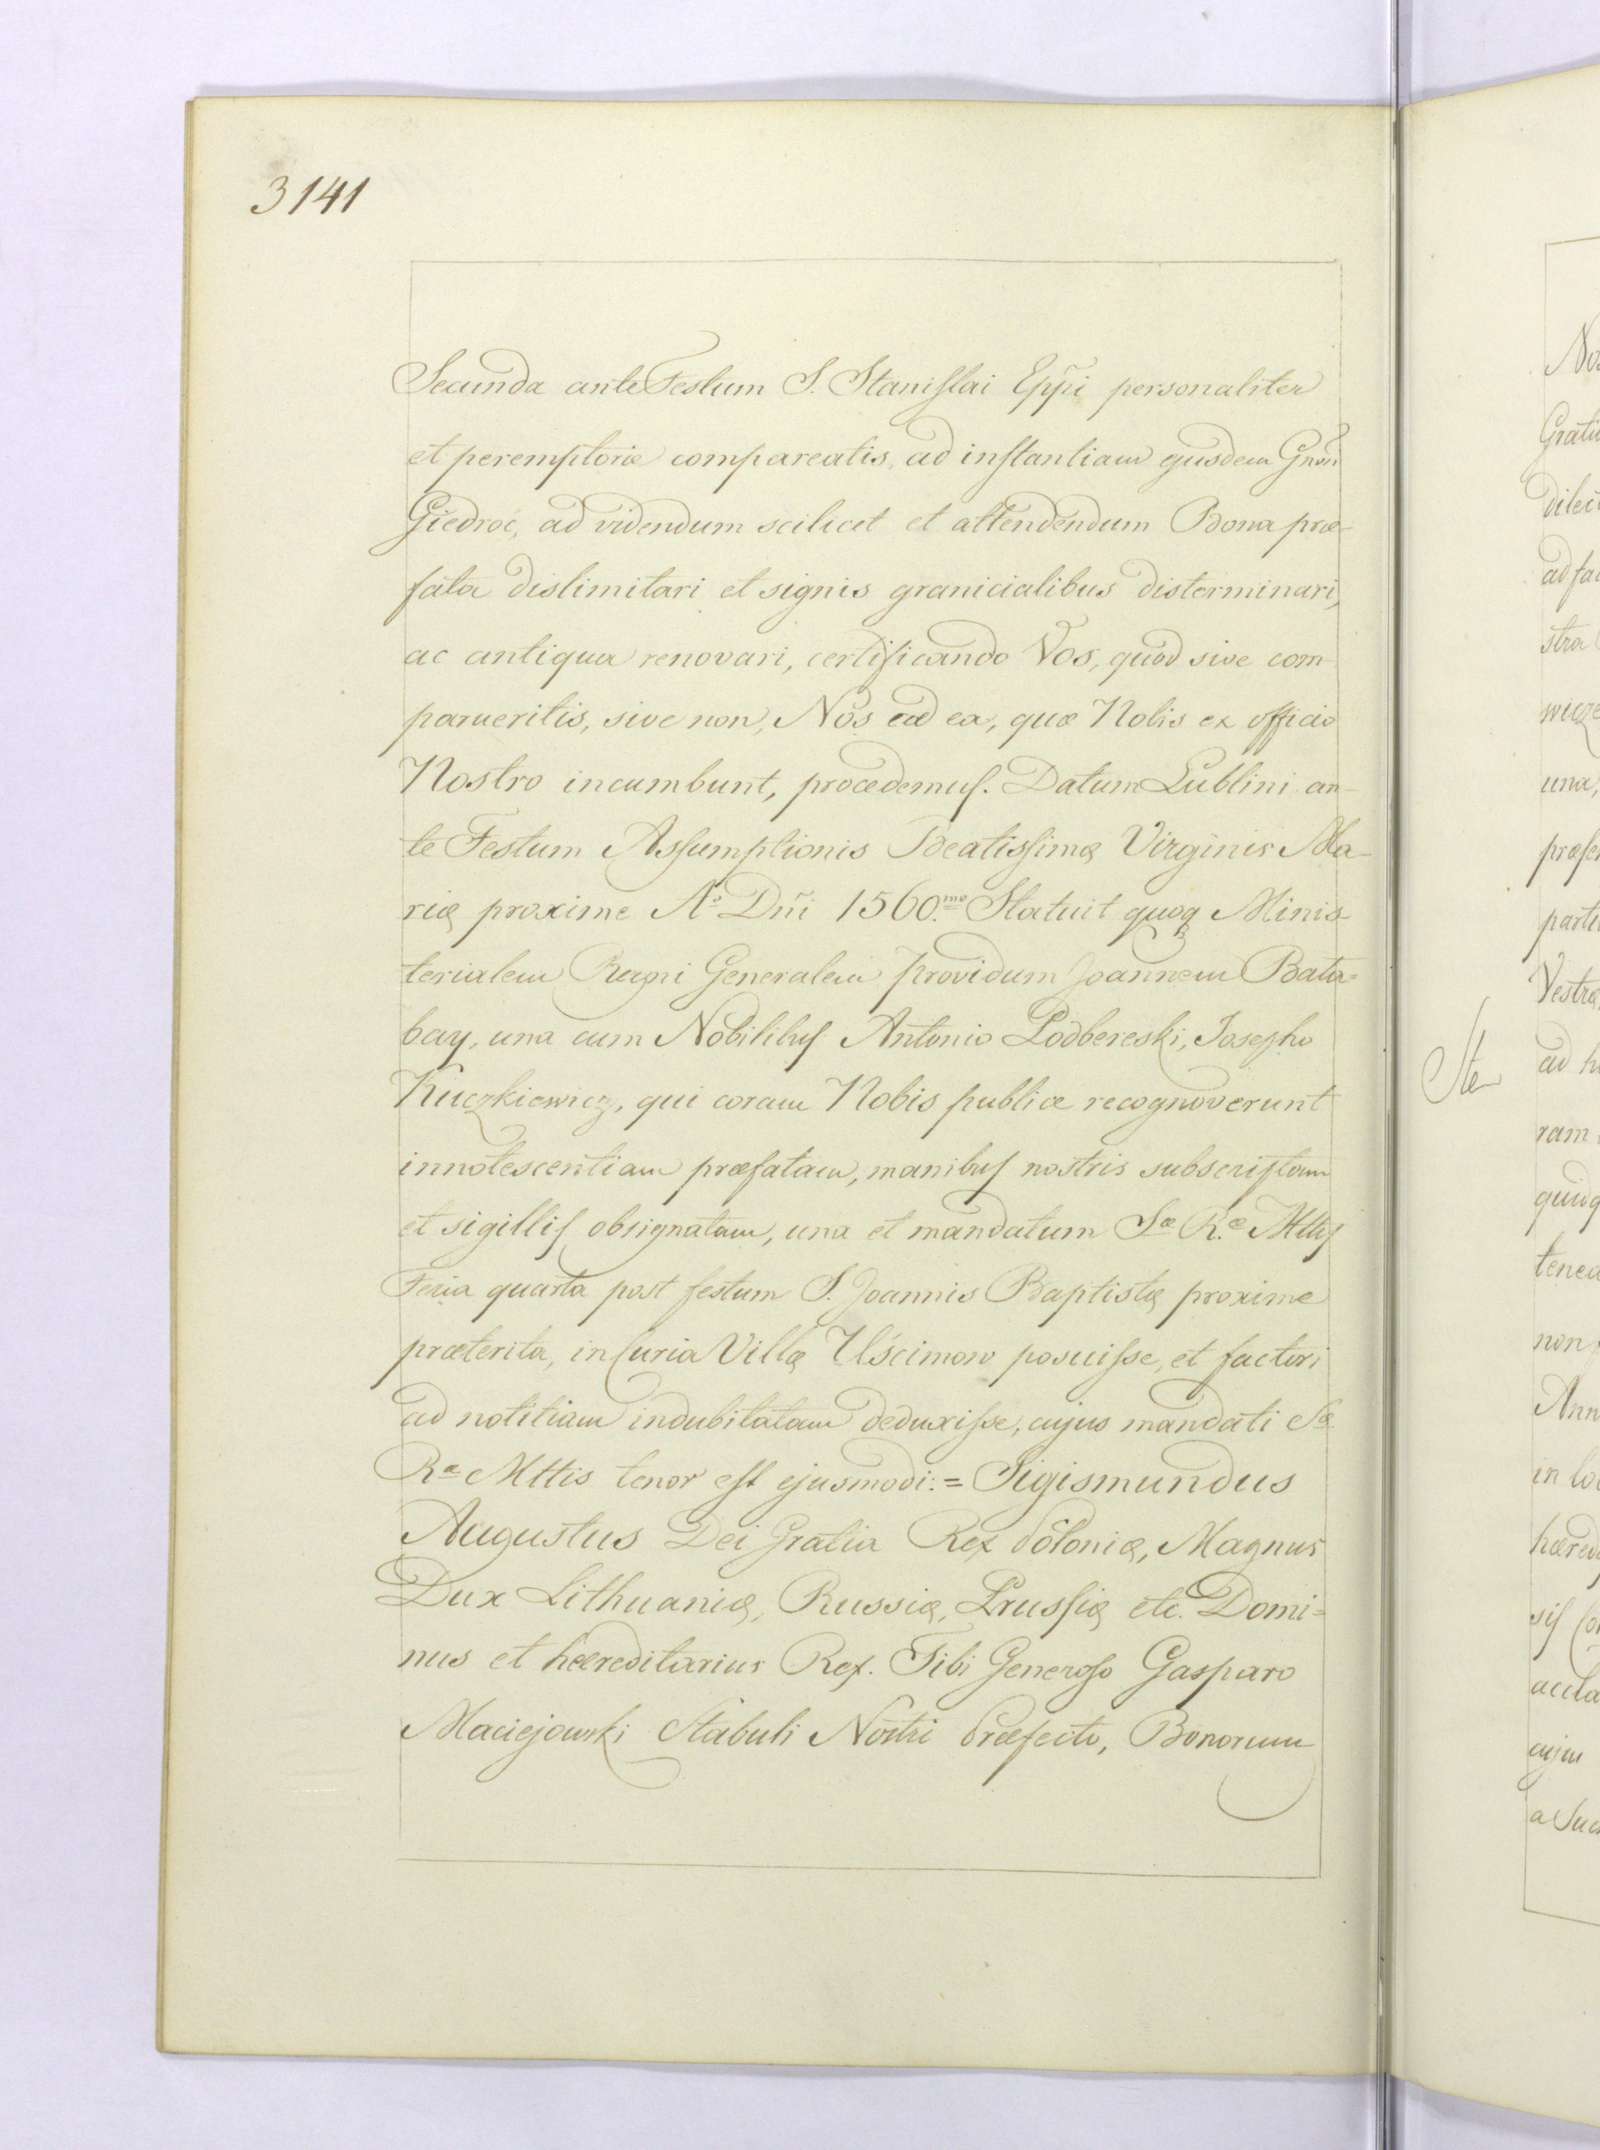 3141
Secunda ante Festum S. Stanislai Eppi personaliter
et peremptorie compareatis, ad instantiam ejusdem Gnsi
Giedroć, ad videndum scilicet et attendendum Bona præ-
fata dislimitari et signis granicialibus disterminari,
ac antiqua renovari, certificando Vos, quod sive com-
parueritis, sive non, Nos ad ea, quæ Nobis ex officio
Nostro incumbunt, procedemus. Datum Lublini an-
te Festum Assumptionis Beatissimæ Virginis Ma-
riæ proxime Aº Dñi 1560.mo Statuit quoq Minis-
terialem Regni Generalem providum Joannem Bata=
bay, una cum Nobilibus Antonio Podbereski, Josepho
Kuczkiewicz, qui coram Nobis publice recognoverunt
innotescentiam præfatam, manibus nostris subscriptam
et sigillis obsignatam, una et mandatum Sæ R.æ Mttis
Feria quarta post festum S. Joannis Baptistæ proxime
præterita, in Curia Villæ Uścimow posuisse, et factori
ad notitiam indubitatam deduxisse, cujus mandati Sæ
Ræ Mttis tenor est ejusmodi: = Sigismundus
Augustus Dei Gratia Rex Poloniæ, Magnus
Dux Lithuaniæ, Russiæ, Prussiæ etc. Domi=
nus et hæreditarius Rex. Tibi Generoso Gasparo
Maciejowski Stabuli Nostri Præfecto, Bonorum